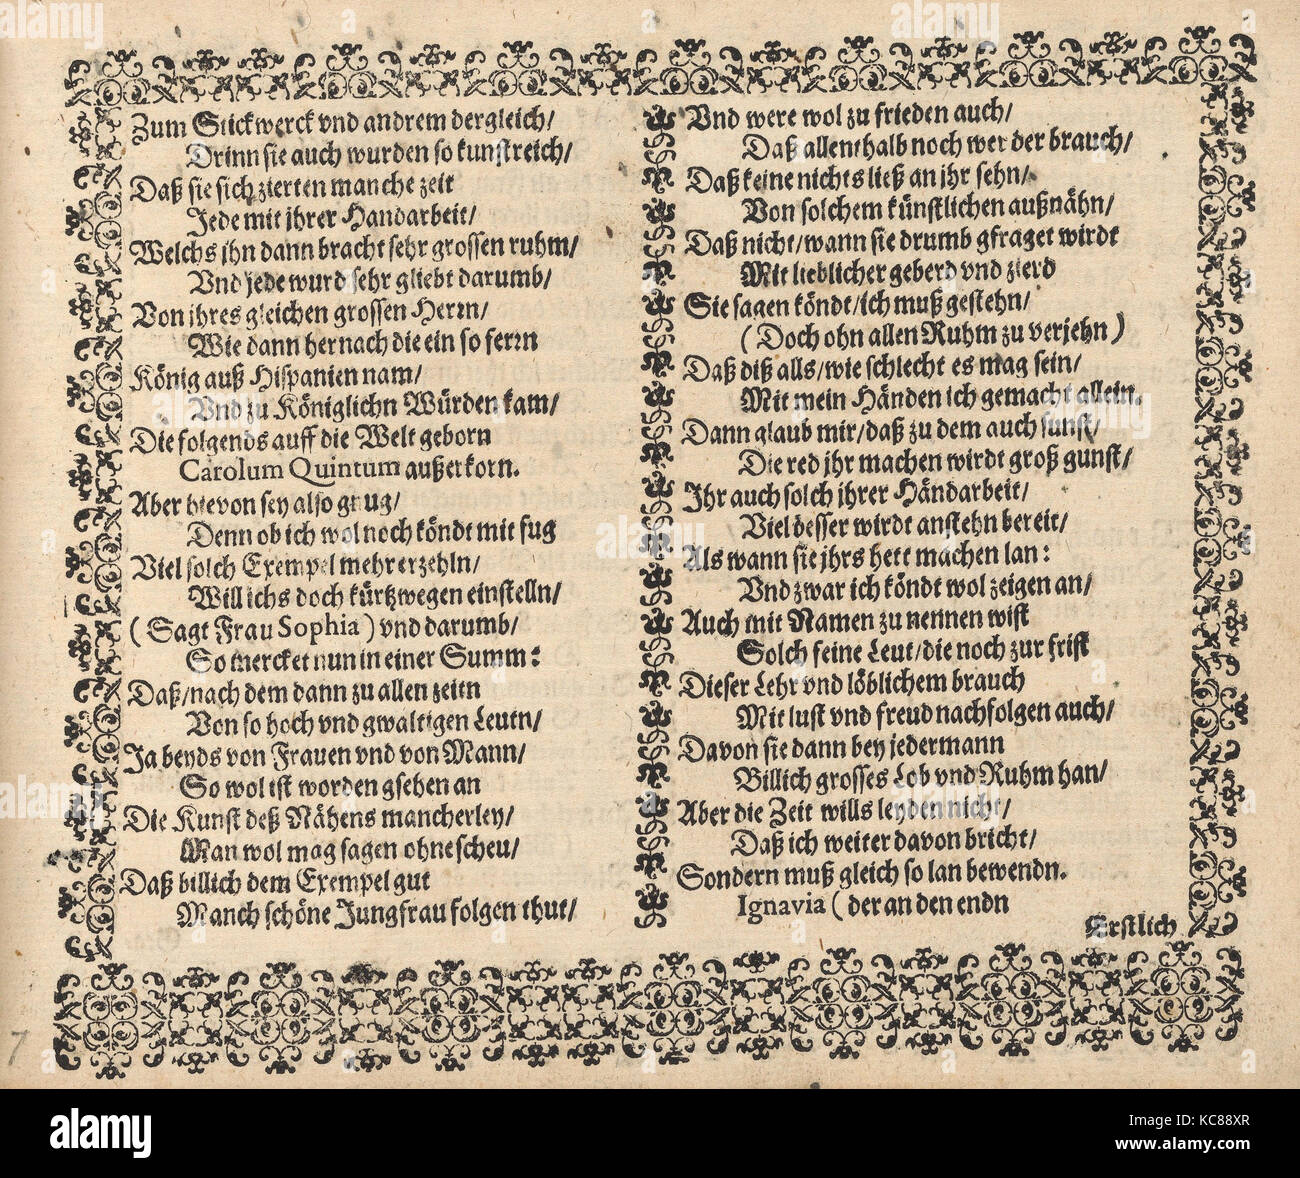 Zum Stickwerck vnd andrem dergleich/
Drinn sie auch wurden so kunstreich/
Daß sie sich zierten manche zeit
Jede mit jhrer Handarbeit/
Welchs jhn dann bracht sehr grossen ruhm/
Vnd jede wurd sehr gliebt darumb/
Von jhres gleichen grossen Herrn/
Wie dann hernach die ein so ferrn
König auß Hispanien nam/
Vnd zu Königlichn Würden kam/
Die folgends auff die Welt geborn
Carolum Quintum außerkorn.
Aber hievon sey also gnug/
Denn ob ich wol noch köndt mit fug
Viel solch Exempel mehr erzehln/
Will ichs doch kürtzwegen einstelln/
(Sagt Frau Sophia) vnd darumb/
So mercket nun in einer Summ:
Daß/nach dem dann zu allen zeitn
Von so hoch vnd gwaltigen Leutn/
Ja beyds von Frauen vnd von Mann/
So wol ist worden gsehen an
Die Kunst deß Nähens mancherley/
Man wol mag sagen ohne scheu/
Daß billich dem Exempel gut
Manch schöne Jungfrau folgen thut/
Vnd were wol zu frieden auch/
Daß allenthalb noch wer der brauch/
Daß keine nichts ließ an jhr sehn/
Von solchem künstlichen außnähn/
Daß nicht/wann sie drumb gfraget wirdt
Mit lieblicher geberd vnd zierd
Sie sagen köndt/ich muß gestehn/
(Doch ohn allen Ruhm zu verjehn)
Daß diß alls/wie schlecht es mag sein/
Mit mein Händen ich gemacht allein.
Dann glaub mir/daß zu dem auch sunst/
Die red jhr machen wirdt groß gunst/
Ihr auch solch jhrer Händarbeit/
Viel besser wirdt anstehn bereit/
Als wann sie jhrs hett machen lan:
Vnd zwar ich köndt wol zeigen an/
Auch mit Namen zu nennen wist
Solch feine Leut/die noch zur frist
Dieser Lehr vnd löblichem brauch
Mit lust vnd freud nachfolgen auch/
Davon sie dann bey jedermann
Billich grosses Lob vnd Ruhm han/
Aber die Zeit wills leyden nicht/
Daß ich weiter davon bricht/
Sondern muß gleich so lan bewendn.
Ignavia (der an den endn
Erstlich
7
alamy stock photo
KC88XR
www.alamy.com